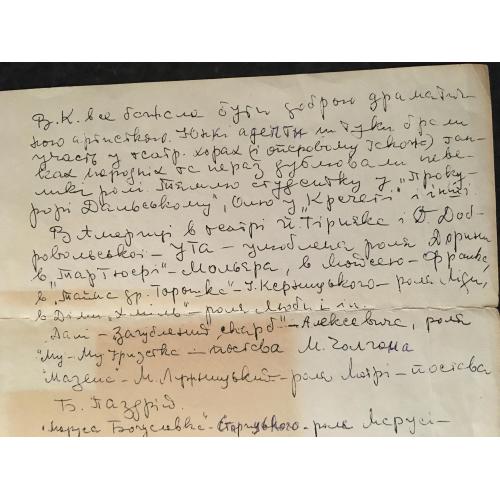 В. К. все бажала бути доброю драматич-
ною артисткою. Юнкі адепти штуки брали
участь у театр. хорах (і оперовому також) тан-
ках народніх та нераз дублювали неве-
ликі ролі. Тямлю студентку у "Проку-
рорі Дальському", Олю у "Кречеті" і інші.
В Америці в театрі Й. Гірняка і О. Доб-
ровольської - УТА - улюблена роля Дорини
в "Тартюфі" - Мольєра, в Мойсею - Франка,
в "Тайна др. Горошка" - І. Керницького - роля Ліди,
в Діми "Хміль" - роля Люби і ін.
Далі - "Загублений скарб" - Алексевича, роля
"Му-Му Гризетка - постава М. Чолгана
"Мазепа - М. - роля Мотрі - постава
Б. Паздрій.
"Маруся Богуславка" - Старицького - роля Марусі -